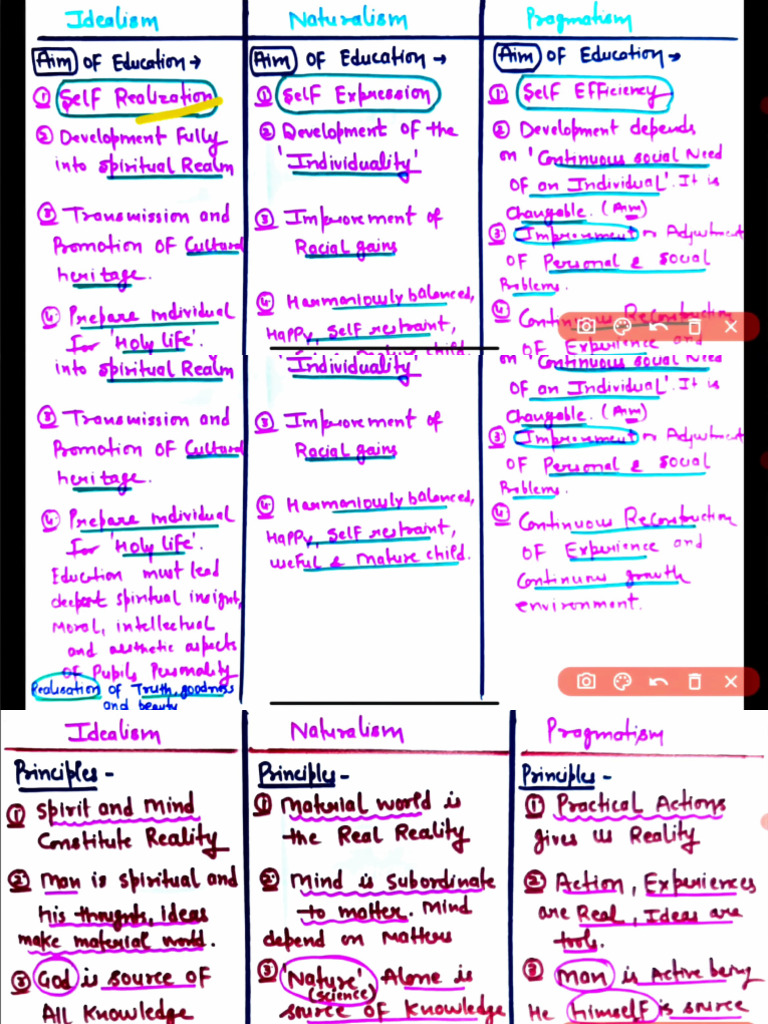 Idealism
Aim of Education →
① Self Realization
② Development Fully
into spiritual Realm
③ Transmission and
Promotion of Cultural
heritage.
④ Prepare individual
For 'Holy life'.
Naturalism
Aim of Education →
① Self Expression
② Development of the
'Individuality'
③ Improvement of
Racial gains
④ Harmoniously balanced,
Happy, self restraint,
Pragmatism
Aim of Education →
① Self Efficiency
② Development depends
on 'Continuous social Need
OF an Individual'. It is
changeable. (Aim)
③ Improvement or Adjustment
OF Personal & Social
Problems.
④ Continuous Reconstruction
OF Experience and
into spiritual Realm
③ Transmission and
Promotion OF Cultural
heritage.
④ Prepare individual
For 'Holy life'.
Education must lead
deepest spiritual insight,
Moral, intellectual
and aesthetic aspects
OF Pupils Personality
Realisation of Truth, goodness
and beauty
'Individuality'
③ Improvement of
Racial gains
④ Harmoniously balanced,
Happy, self restraint,
useful & mature child.
on 'Continuous social Need
OF an Individual'. It is
changeable. (Aim)
③ Improvement or Adjustment
OF Personal & Social
Problems.
④ Continuous Reconstruction
OF Experience and
Continuous growth
environment.
Idealism
Principles -
① Spirit and Mind
Constitute Reality
② Man is spiritual and
his thoughts, ideas
make material world.
③ God is source OF
All Knowledge
Naturalism
Principles -
① Material world is
the Real Reality
② Mind is Subordinate
to matter. Mind
depend on Matters
③ 'Nature' Alone is
(science)
source OF Knowledge
Pragmatism
Principles -
① Practical Actions
gives us Reality
② Action, Experiences
are Real, Ideas are
tools.
③ man is Active being
He himself is source